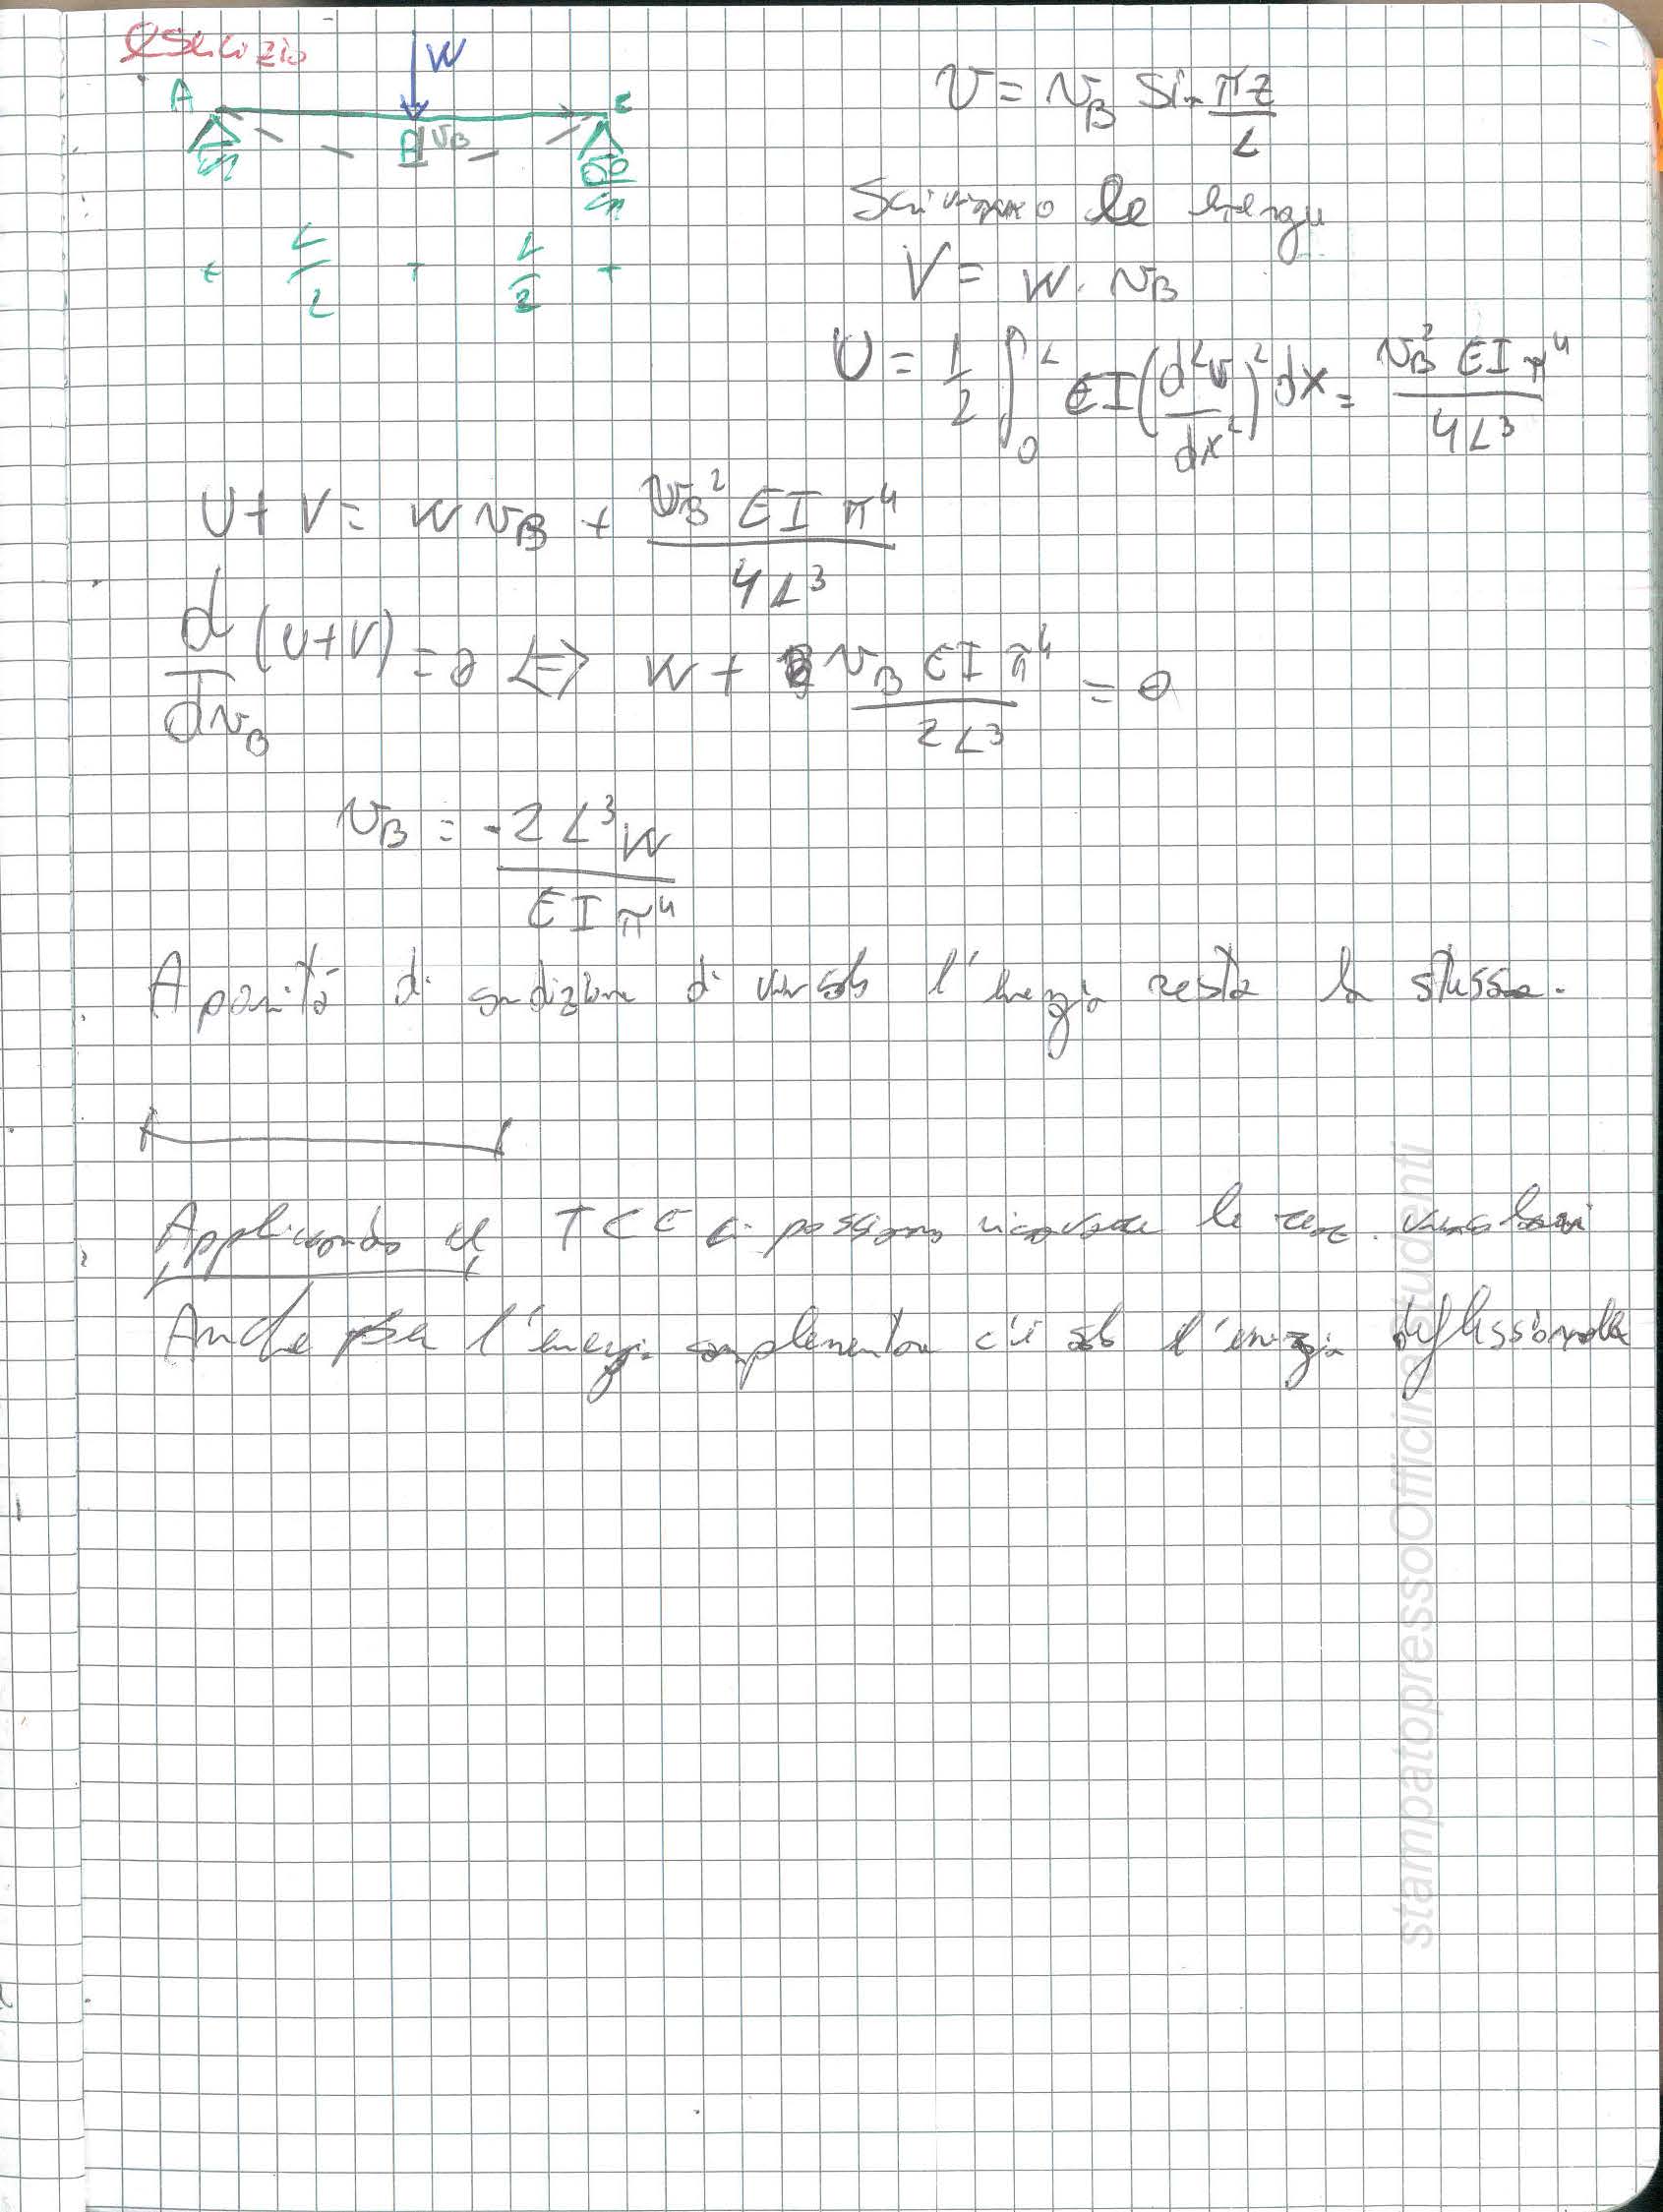 Esercizio
W
A
B
v_B
C
L/2
L/2
v = v_B sin πz/L
Scriviamo le energie
V = W · v_B
U = 1/2 ∫_0^L EI (d²v/dx²)² dx = v_B² EI π⁴ / 4L³
U + V = W v_B + v_B² EI π⁴ / 4L³
d/dv_B (U+V) = 0 <=> W + v_B EI π⁴ / 2L³ = 0
v_B = -2L³W / EI π⁴
A parità di condizione di vincolo l'energia resta la stessa.
Applicando il TCE si possono ricavare le reaz. vincolari
Anche per l'energia complementare c'è solo l'energia deflessionale
stampatopressoOfficineStudenti